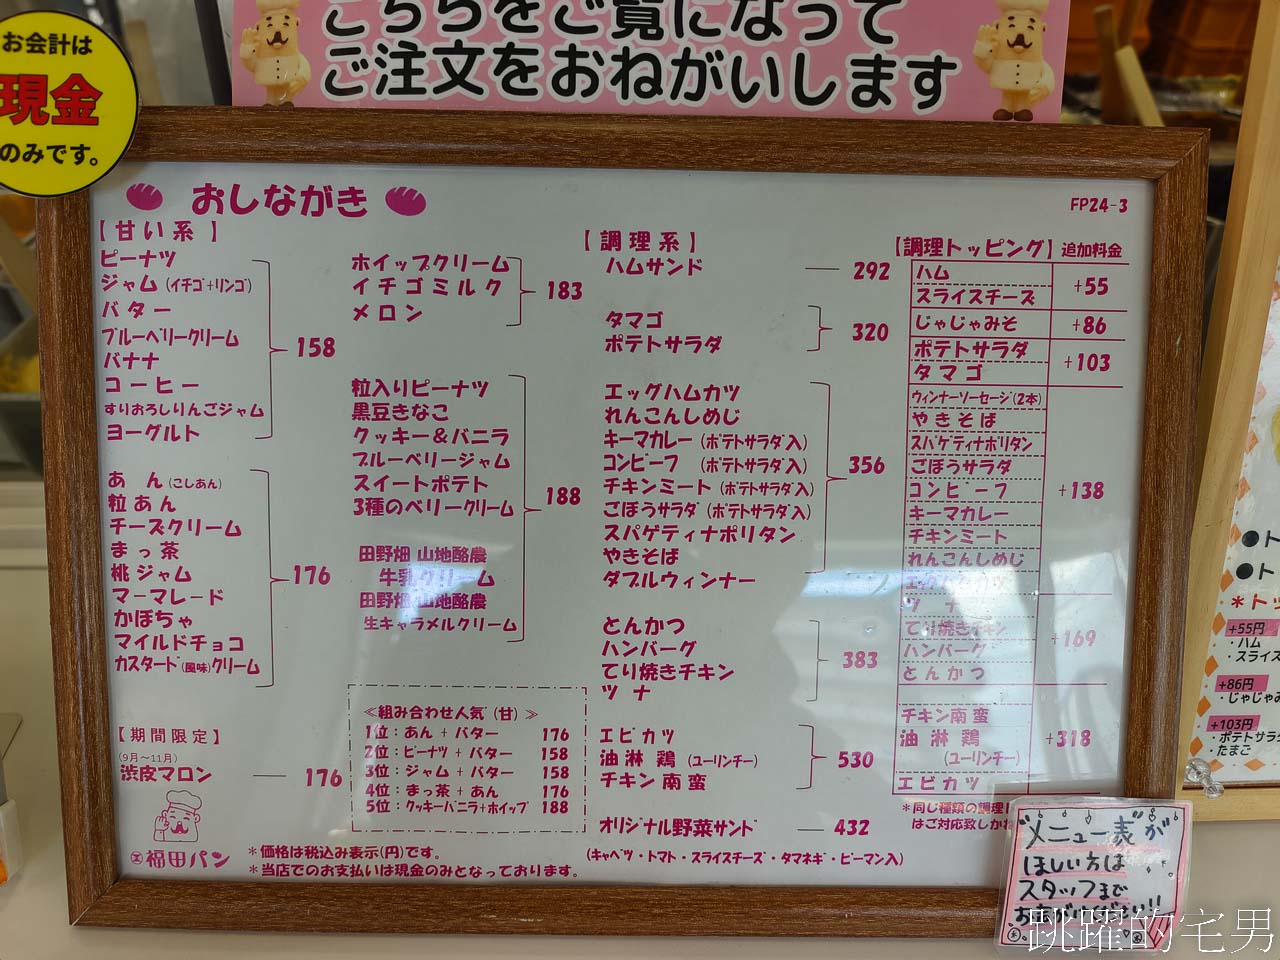 こちらをご覧になって
ご注文をおねがいします
お会計は
現金
のみです。
おしながき
FP24-3
【甘い系】
ピーナツ
ジャム(イチゴ+リンゴ)
バター
ブルーベリークリーム
バナナ
コーヒー
すりおろしりんごジャム
ヨーグルト
158
あん(こしあん)
粒あん
チーズクリーム
まっ茶
桃ジャム
マーマレード
かぼちゃ
マイルドチョコ
カスタード(風味)クリーム
176
【期間限定】
(9月〜11月)
渋皮マロン — 176
福田パン
ホイップクリーム
イチゴミルク
メロン
183
粒入りピーナツ
黒豆きなこ
クッキー&バニラ
ブルーベリージャム
スイートポテト
3種のベリークリーム
田野畑 山地酪農
牛乳クリーム
田野畑 山地酪農
生キャラメルクリーム
188
≪組み合わせ人気(甘)≫
1位:あん+バター 176
2位:ピーナツ+バター 158
3位:ジャム+バター 158
4位:まっ茶+あん 176
5位:クッキーバニラ+ホイップ 188
*価格は税込み表示(円)です。
*当店でのお支払いは現金のみとなっております。
【調理系】
ハムサンド — 292
タマゴ
ポテトサラダ
320
エッグハムカツ
れんこんしめじ
キーマカレー(ポテトサラダ入)
コンビーフ(ポテトサラダ入)
チキンミート(ポテトサラダ入)
ごぼうサラダ(ポテトサラダ入)
スパゲティナポリタン
やきそば
ダブルウィンナー
356
とんかつ
ハンバーグ
てり焼きチキン
ツナ
383
エビカツ
油淋鶏(ユーリンチー)
チキン南蛮
530
オリジナル野菜サンド — 432
(キャベツ・トマト・スライスチーズ・タマネギ・ピーマン入)
【調理トッピング】追加料金
ハム
スライスチーズ
+55
じゃじゃみそ +86
ポテトサラダ
タマゴ
+103
ウィンナーソーセージ(2本)
やきそば
スパゲティナポリタン
ごぼうサラダ
コンビーフ
キーマカレー
チキンミート
れんこんしめじ
エッグハムカツ
+138
ツナ
てり焼きチキン
ハンバーグ
とんかつ
+169
チキン南蛮
油淋鶏
(ユーリンチー)
エビカツ
+318
*同じ種類の調理
はご対応致しかね
"メニュー表"が
ほしい方は
スタッフまで
お声がけください!!
●ト
●ト
*トッ
+55円
・ハム
・スライス
+86円
・じゃじゃみ
+103円
・ポテトサラダ
・たまご
跳躍的宅男